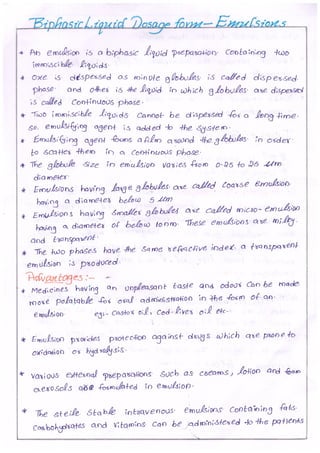 Biphasic Liquid Dosage form - Emulsions
* An emulsion is a biphasic liquid preparation containing two
immiscible liquids.
* One is dispersed as minute globules is called dispersed
phase and other is the liquid in which globules are dispersed
is called continuous phase.
* Two immiscible liquids cannot be dispersed for a long time.
so emulsifying agent is added to the system.
* Emulsifying agent forms a film around the globules in order
to scatter them in a continuous phase.
* The globule size in emulsion varies from 0.25 to 25 µm
diameter
* Emulsions having large globules are called coarse emulsion
having a diameter below 5 µm
* Emulsions having smaller globules are called micro-emulsion
having a diameter of below 10nm. These emulsions are milky.
and transparent.
* The two phases have the same refractive index. a transparent
emulsion is produced.
Advantages :-
* Medicines having an unpleasant taste and odour can be made
more palatable for oral administration in the form of an
emulsion eg:- Castor oil, Cod-liver oil etc.
* Emulsion provides protection against drugs which are prone to
oxidation or hydrolysis.
* Various external preparations such as creams, lotion and foam
aerosols are formulated in emulsion.
* The sterile stable intravenous emulsions containing fats.
carbohydrates and vitamins can be administered to the patients